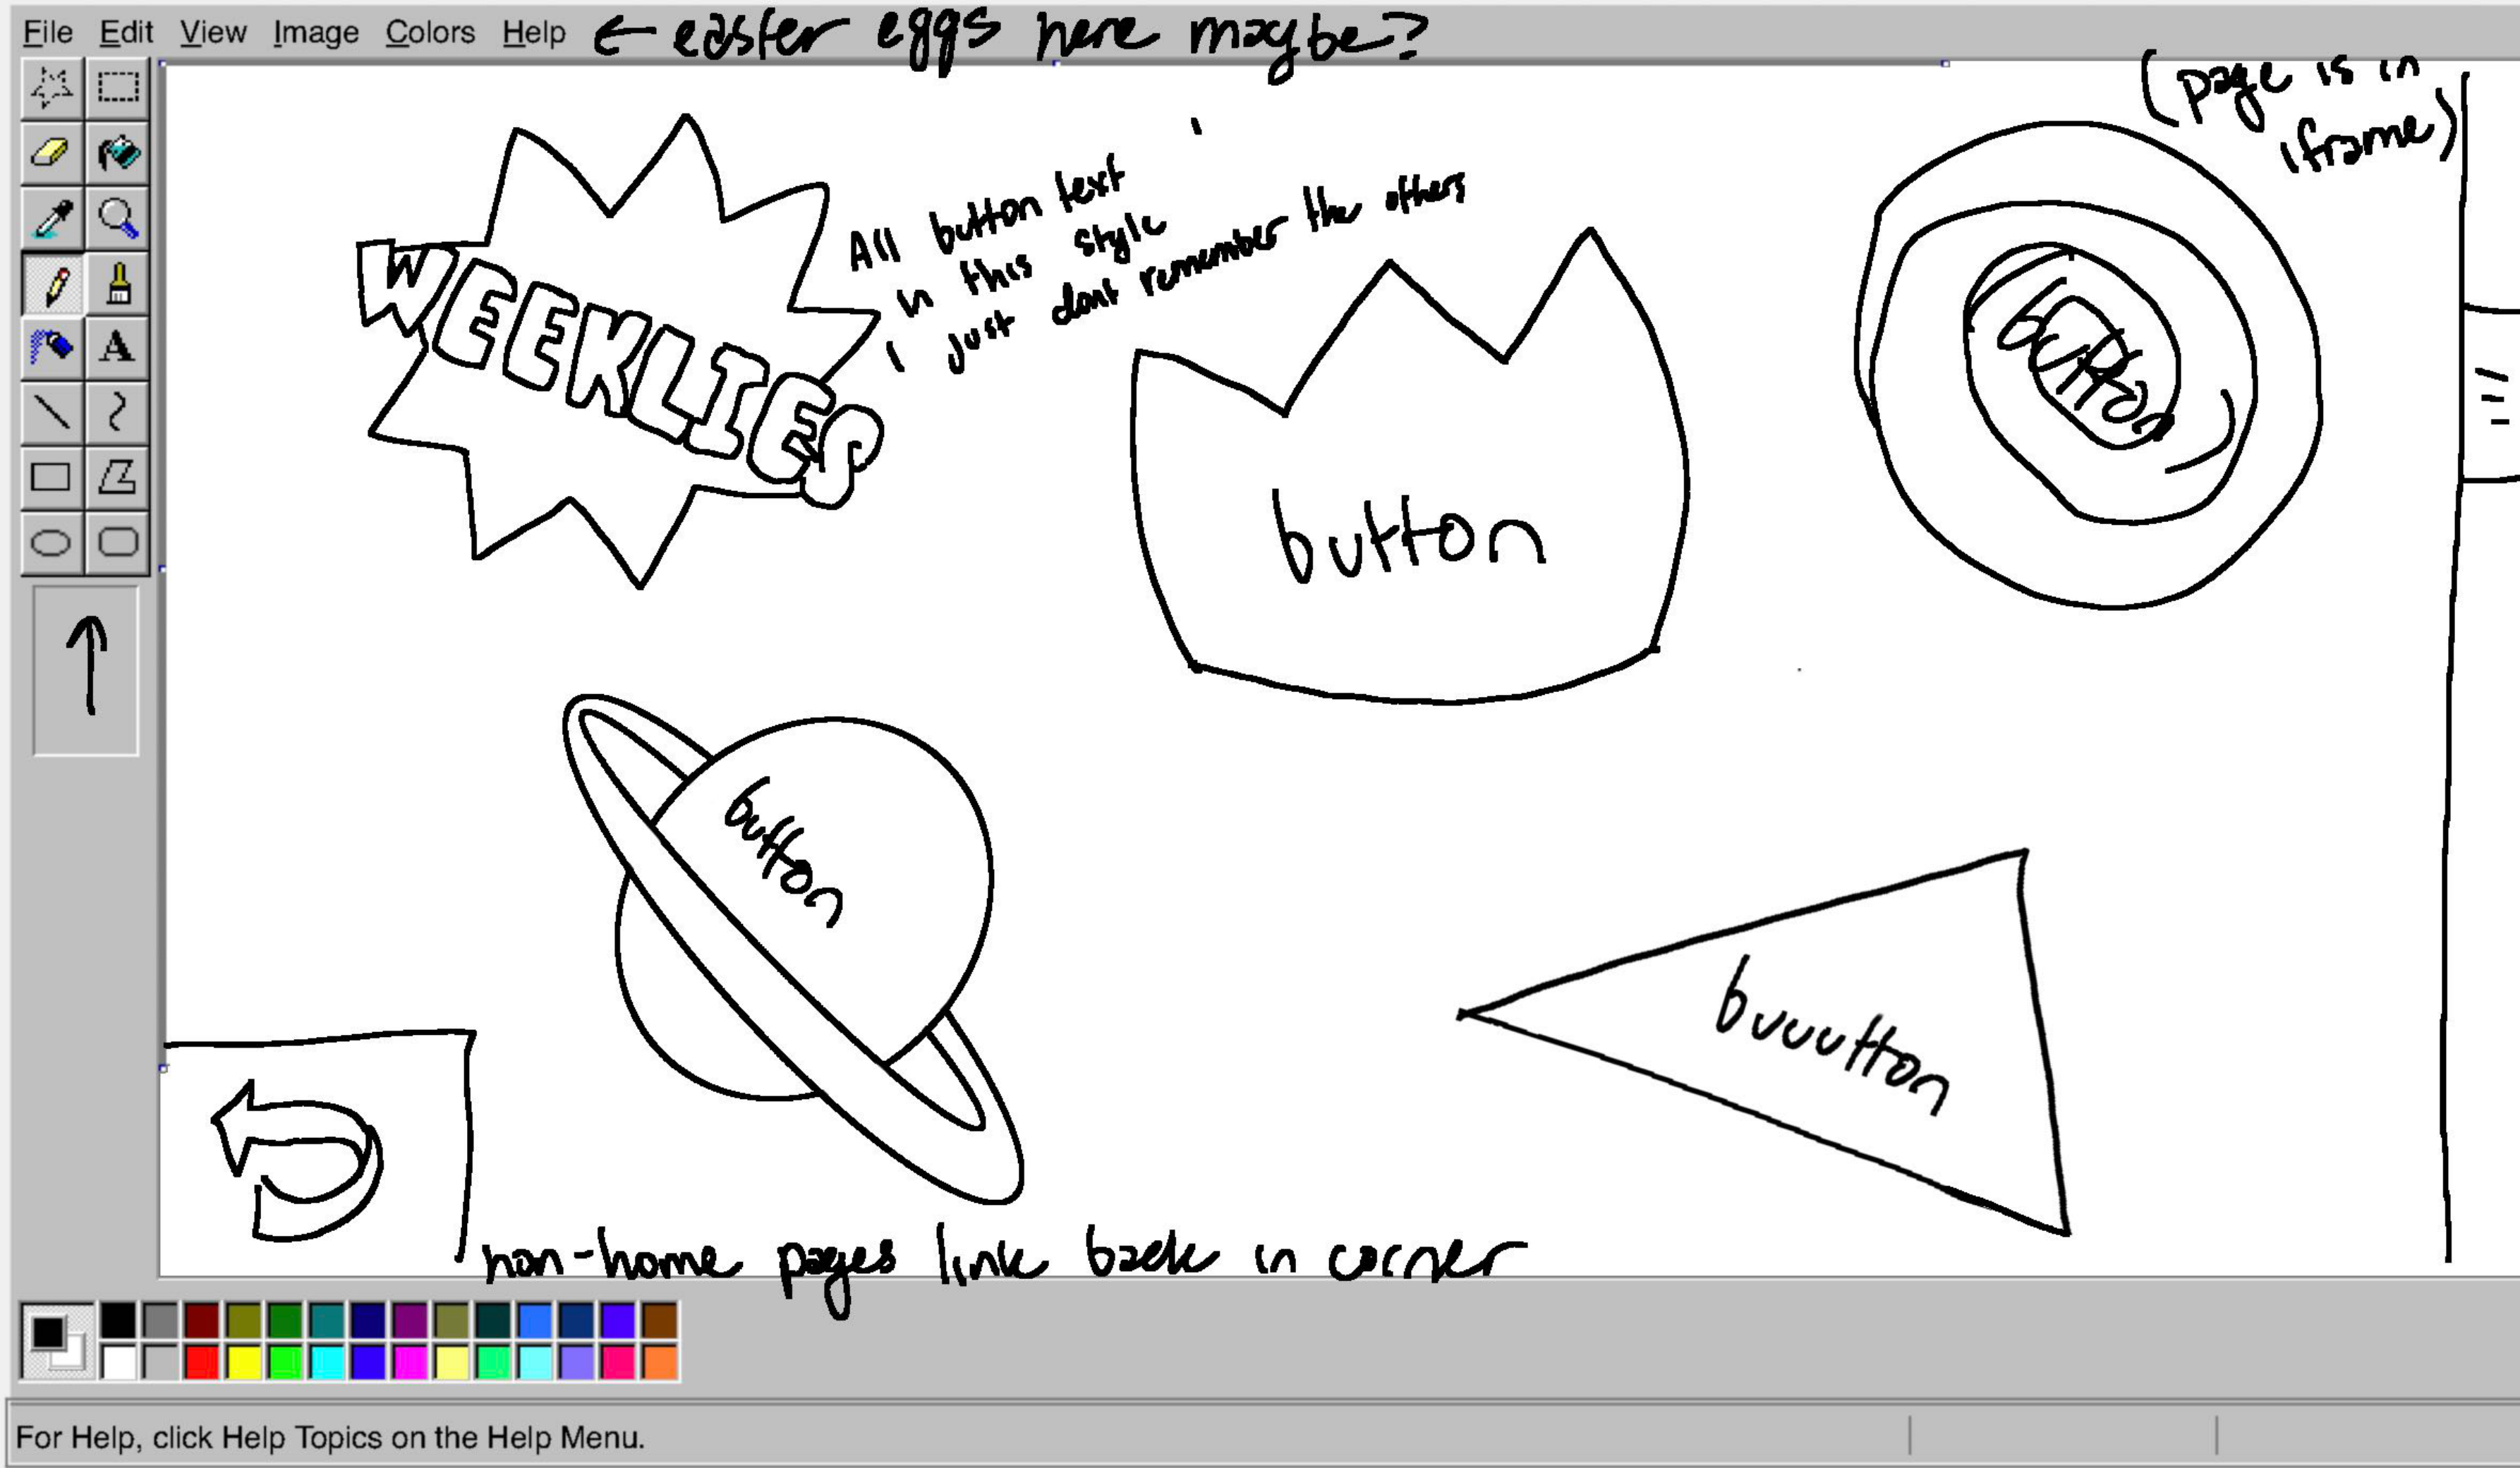 File Edit View Image Colors Help ← easter eggs here maybe?
(page is in
iframe)
All button text
in this style
I just dont remember the others
WEEKLIES
button
button
button
buuutton
non-home pages link back in corner
For Help, click Help Topics on the Help Menu.